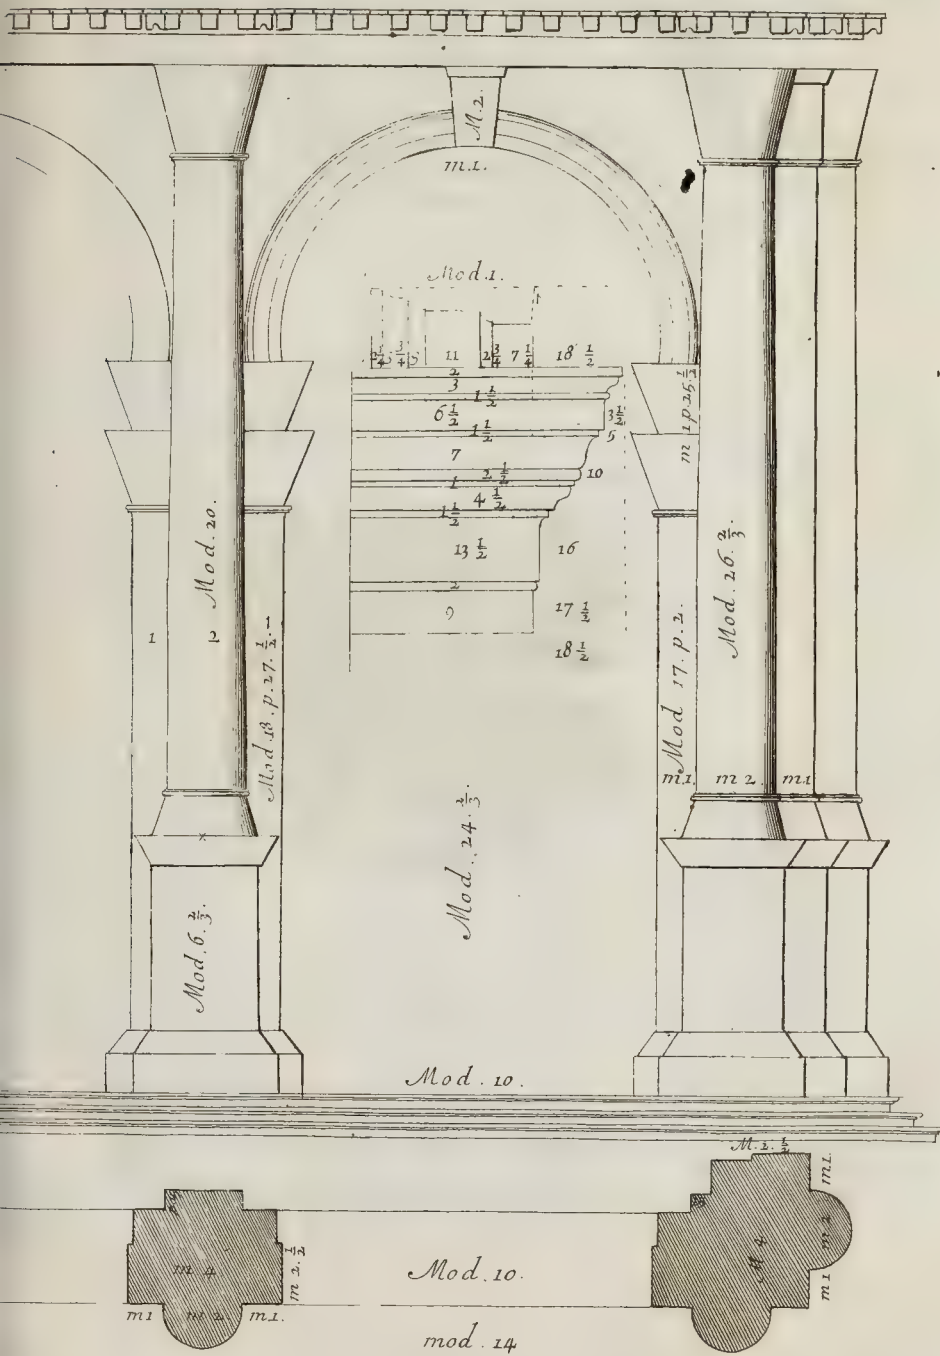 M.2.
m.1.
Mod.1.
2 1/4 3/4 5 11 2 3/4 7 1/4 18 1/2
2
3
1 1/2
6 1/2
3 1/2
1 1/2
5
7
2 1/2
10
1
4 1/2
1 1/2
13 1/2
16
2
9
17 1/2
18 1/2
m 1 p.25. 1/2
Mod.20.
Mod.26.2/3.
1
2
Mod.18.p.27.1/2.
Mod 17.p.2.
m.1. m 2. m.1
Mod.24.2/3.
Mod.6.2/3.
Mod.10.
M.2.1/2
m 1.
m 2
m 1
M 4
m 4.
m 2.1/2
Mod.10.
m 1 m 2 m.1.
mod.14